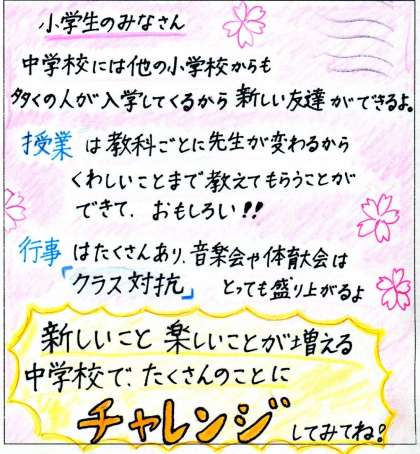 小学生のみなさん
中学校には他の小学校からも
多くの人が入学してくるから新しい友達ができるよ。
授業は教科ごとに先生が変わるから
くわしいことまで教えてもらうことが
できて、おもしろい!!
行事はたくさんあり、音楽会や体育大会は
「クラス対抗」とっても盛り上がるよ
新しいこと楽しいことが増える
中学校で、たくさんのことに
チャレンジしてみてね!